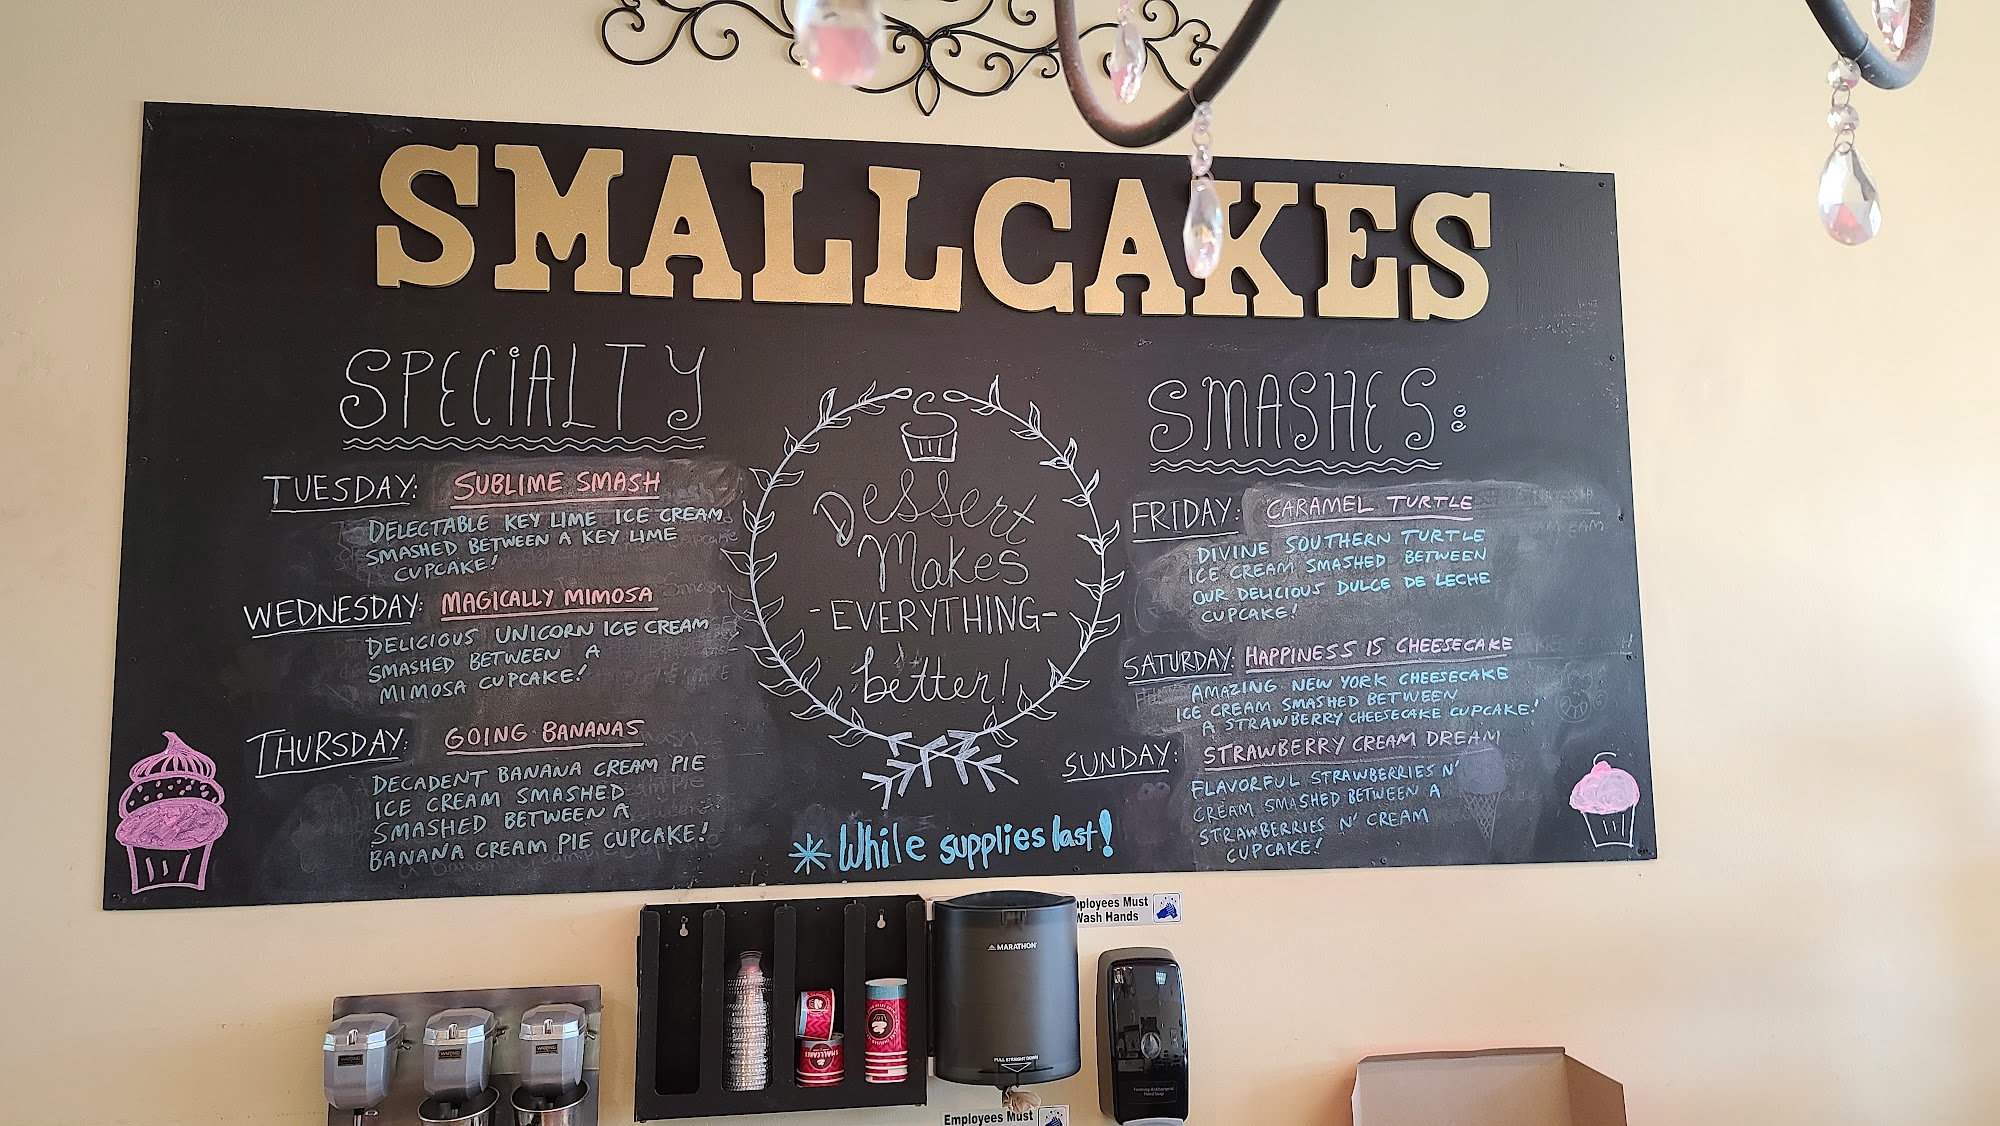 SMALLCAKES
SPECIALTY SMASHES:
TUESDAY: SUBLIME SMASH
DELECTABLE KEY LIME ICE CREAM
SMASHED BETWEEN A KEY LIME
CUPCAKE!
WEDNESDAY: MAGICALLY MIMOSA
DELICIOUS UNICORN ICE CREAM
SMASHED BETWEEN A
MIMOSA CUPCAKE!
THURSDAY: GOING BANANAS
DECADENT BANANA CREAM PIE
ICE CREAM SMASHED
SMASHED BETWEEN A
BANANA CREAM PIE CUPCAKE!
Dessert
Makes
-EVERYTHING-
better!
* While supplies last!
FRIDAY: CARAMEL TURTLE
DIVINE SOUTHERN TURTLE
ICE CREAM SMASHED BETWEEN
OUR DELICIOUS DULCE DE LECHE
CUPCAKE!
SATURDAY: HAPPINESS IS CHEESECAKE
AMAZING NEW YORK CHEESECAKE
ICE CREAM SMASHED BETWEEN
A STRAWBERRY CHEESECAKE CUPCAKE!
SUNDAY: STRAWBERRY CREAM DREAM
FLAVORFUL STRAWBERRIES N'
CREAM SMASHED BETWEEN A
STRAWBERRIES N' CREAM
CUPCAKE!
ployees Must
Wash Hands
MARATHON
PULL STRAIGHT DOWN
WARING
WARING
WARING
SMALLCAKES
Employees Must